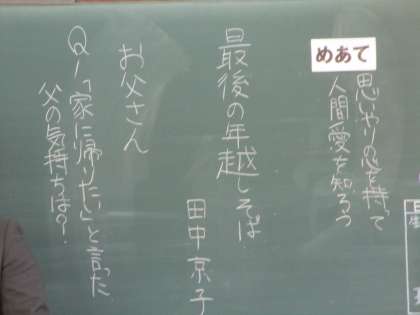 めあて
思いやりの心を持って
人間愛を知ろう
最後の年越しそば
田中京子
お父さん
Q1「家に帰りたい」と言った
父の気持ちは？